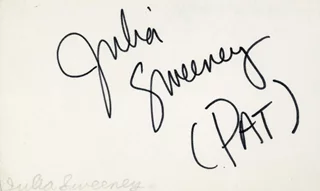 Julia
Sweeney
(PAT)
Julia Sweeney